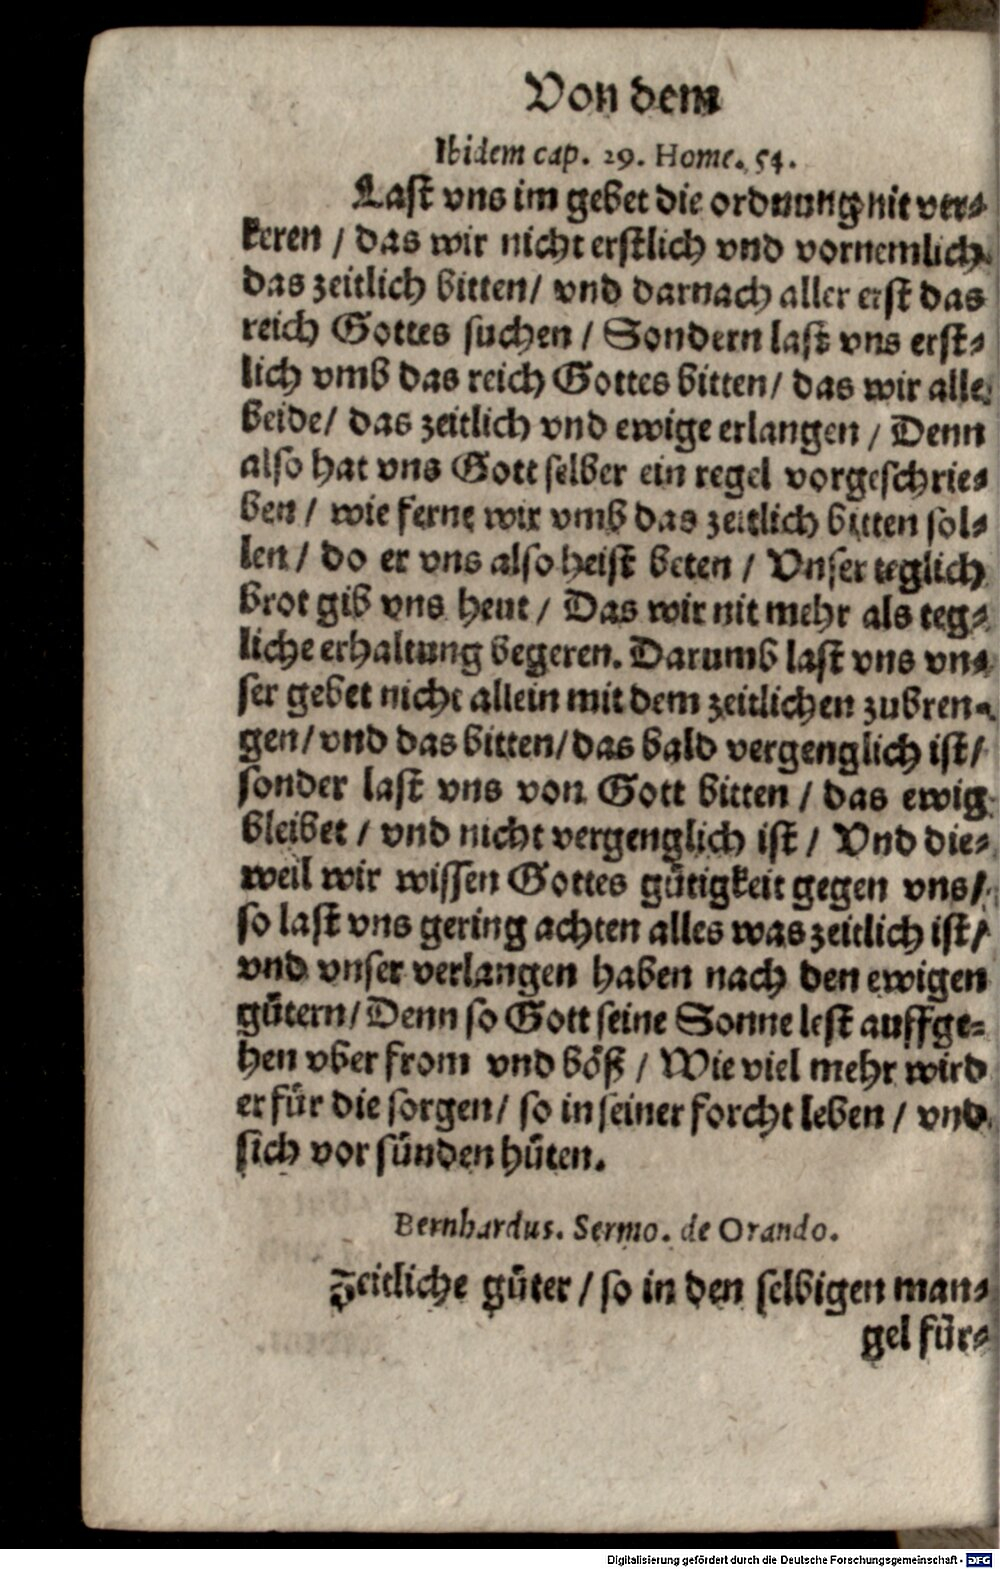 Von dem
Ibidem cap. 29. Home. 54.
Last vns im gebet die ordnung nit ver-
keren / das wir nicht erstlich vnd vornemlich
das zeitlich bitten / vnd darnach aller erst das
reich Gottes suchen / Sondern last vns erst-
lich vmb das reich Gottes bitten / das wir alle
beide / das zeitlich vnd ewige erlangen / Denn
also hat vns Gott selber ein regel vorgeschrie-
ben / wie ferne wir vmb das zeitlich bitten sol-
len / do er vns also heist beten / Vnser teglich
brot gib vns heut / Das wir nit mehr als teg-
liche erhaltung begeren. Darumb last vns vn-
ser gebet nicht allein mit dem zeitlichen zubren-
gen / vnd das bitten / das bald vergenglich ist /
sonder last vns von Gott bitten / das ewig
bleibet / vnd nicht vergenglich ist / Vnd die-
weil wir wissen Gottes gütigkeit gegen vns /
so last vns gering achten alles was zeitlich ist /
vnd vnser verlangen haben nach den ewigen
gütern / Denn so Gott seine Sonne lest auffge-
hen vber from vnd böß / Wie viel mehr wird
er für die sorgen / so in seiner forcht leben / vnd
sich vor sünden hüten.
Bernhardus. Sermo. de Orando.
Zeitliche güter / so in den selbigen man-
gel für-
Digitalisierung gefördert durch die Deutsche Forschungsgemeinschaft - DFG